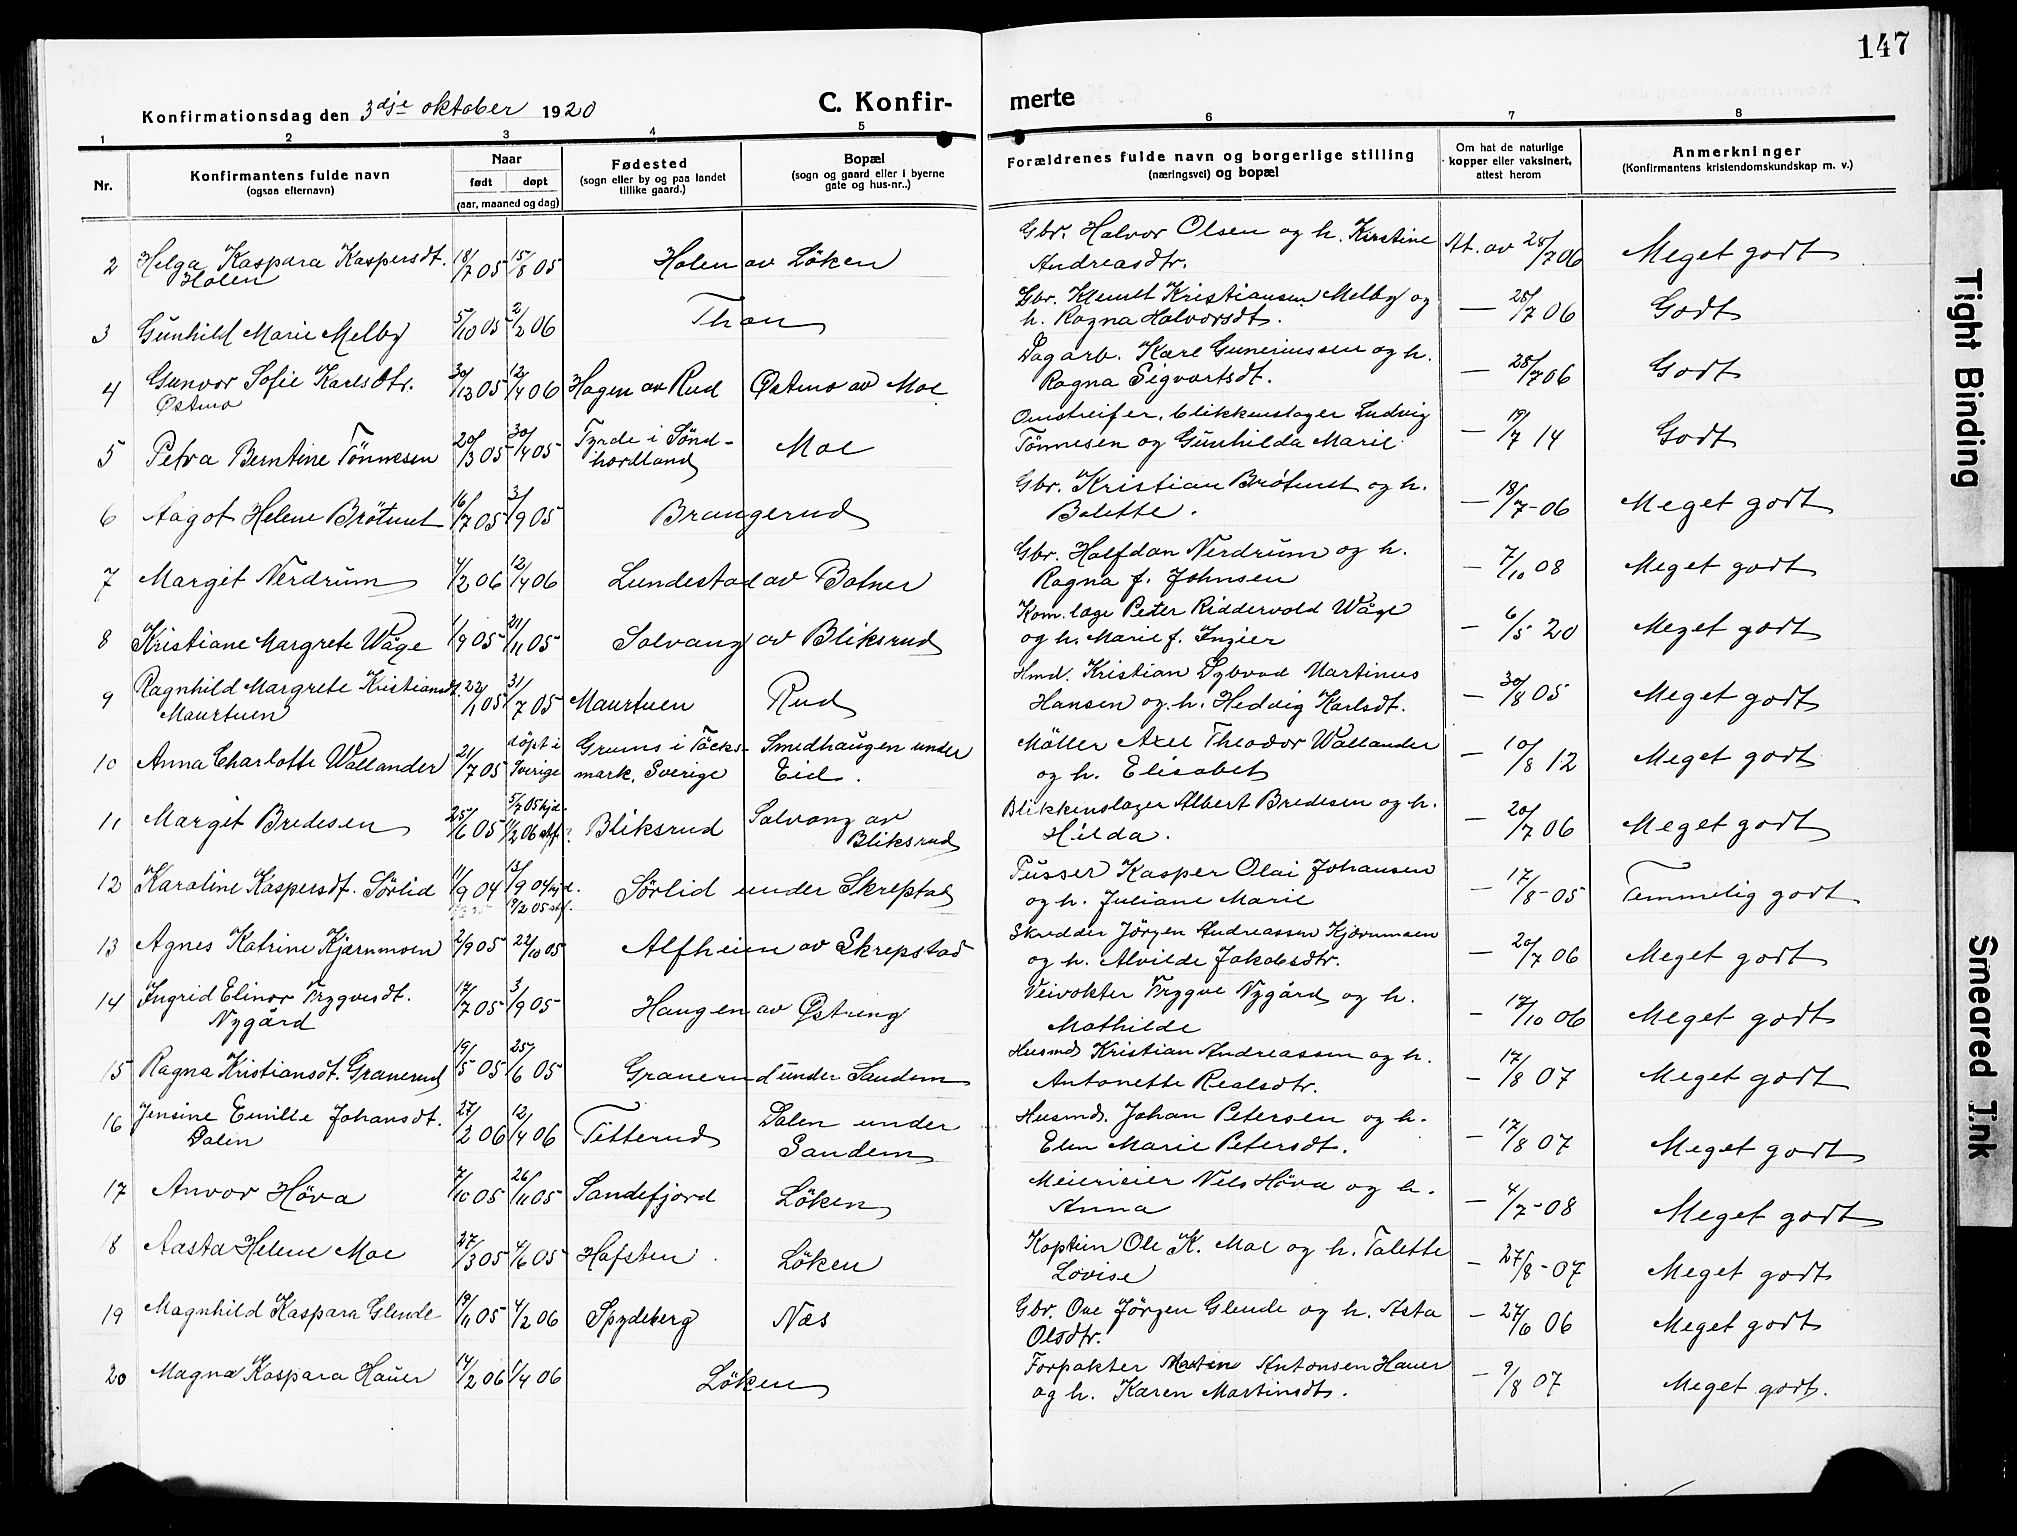 147
Konfirmationsdag den 3dje oktober 1920
C. Konfirmerte
1 2 3 4 5 6 7 8
Nr.
Konfirmantens fulde navn
(ogsaa efternavn)
Naar
født døpt
(aar, maaned og dag)
Fødested
(sogn eller by og paa landet
tillike gaard.)
Bopæl
(sogn og gaard eller i byerne
gate og hus-nr..)
Forældrenes fulde navn og borgerlige stilling
(næringsvei) og bopæl
Om hat de naturlige
kopper eller vaksinert,
attest herom
Anmerkninger
(Konfirmantens kristendomskundskap m. v.)
2 Helga Kaspara Kaspersdt. 18/7 05 15/8 05 Holen av Löken Gbr. Halvor Olsen og h. Kirstine At. av 25/7 06 Meget godt
Holen Andreasdtr.
3 Gunhild Marie Melby 5/10 05 2/2 06 Thon Gbr. Klemet Kristiansen Melby og — 25/7 06 Godt
h. Ragna Halvorsdt.
4 Gunvor Sofie Karlsdtr. 30/12 05 12/4 06 Hagen av Rud Østmo av Moe Dagarb. Karl Guneriussen og h. — 25/7 06 Godt
Østmo Ragna Sigvartsdt.
5 Petra Berntine Tönnesen 20/3 05 30/4 05 Tyrde i Sönd- Moe Omstreifer, blikkenslager Ludvig — 19/7 14 Godt
hordland Tönnesen og Gunhilda Marie
6 Aagot Helene Brötmet 16/7 05 3/9 05 Brangerud Gbr. Kristian Brötmet og h. — 18/7-06 Meget godt
Bolette.
7 Margit Nerdrum 4/2 06 12/4 06 Lundestad av Botner Gbr. Halfdan Nerdrum og h. — 7/10 08 Meget godt
Ragna f. Johnsen
8 Kristiane Margrete Wåge 1/9 05 21/11 05 Solvang av Bliksrud Kom. læge Peter Riddervold Wåge — 6/5 20 Meget godt
og h. Marie f. Ingier
9 Ragnhild Margrete Kristiansdt. 22/1 05 31/7 05 Maurtuen Rud Hmd. Kristian Dybvad Martinus — 30/8 05 Meget godt
Maurtuen Hansen og h. Hedvig Karlsdt.
10 Anna Charlotte Wallander 21/7 05 döpt i Grums i Töcks- Smedhaugen under Möller Axel Theodor Wallander — 10/8 12 Meget godt
Sverige mark, Sverige Eid. og h. Elisabet
11 Margit Bredesen 25/6 05 5/7 05 hjd. Bliksrud Solvang av Blikkenslager Albert Bredesen og h. — 20/7 06 Meget godt
11/2 06 stf. Bliksrud Hilda.
12 Karoline Kaspersdt. Sörlid 11/9 04 13/9 04 hjd. Sörlid under Skrepstad Pusser Kasper Olai Johansen — 17/8-05 Temmelig godt
19/2 05 stf. og h. Juliane Marie
13 Agnes Katrine Kjærnmoen 2/9 05 22/10 05 Alfheim av Skrepstad Skredder Jörgen Andreassen Kjærnmoen — 20/7 06 Meget godt
og h. Alvilde Jakobsdtr.
14 Ingrid Elinor Trygvesdt. 17/7 05 3/9 05 Haugen av Østreng Veivokter Trygve Nygård og h. — 17/10 06 Meget godt
Nygård Mathilde
15 Ragna Kristiansdt. Granerud 19/5 05 25/6 05 Granerud under Sandem Husmd Kristian Andreassen og h. — 17/8 07 Meget godt
Antonette Realsdtr.
16 Jensine Emilie Johansdt. 27/2 06 12/4 06 Titterud Dalen under Husmd. Johan Petersen og h. — 17/8 07 Meget godt
Dalen Sandem Elen Marie Petersdt.
17 Anvor Höva 7/10 05 26/11 05 Sandefjord Löken Meierieier Nils Höva og h. — 4/7-08 Meget godt
Anna
18 Aasta Helene Moe 27/3 05 4/6 05 Hafsten Löken Kaptein Ole K. Moe og h. Talette — 27/8-07 Meget godt
Lovise
19 Magnhild Kaspara Glende 19/11 05 4/2 06 Spydeberg Næs Gbr. Ove Jörgen Glende og h. Asta — 27/6 06 Meget godt
Olsdtr.
20 Magna Kaspara Hauer 14/2 06 1/4 06 Löken Forpakter Martin Antonsen Hauer — 9/8 07 Meget godt.
og h. Karen Martinsdt.
Tight Binding
Smeared Ink